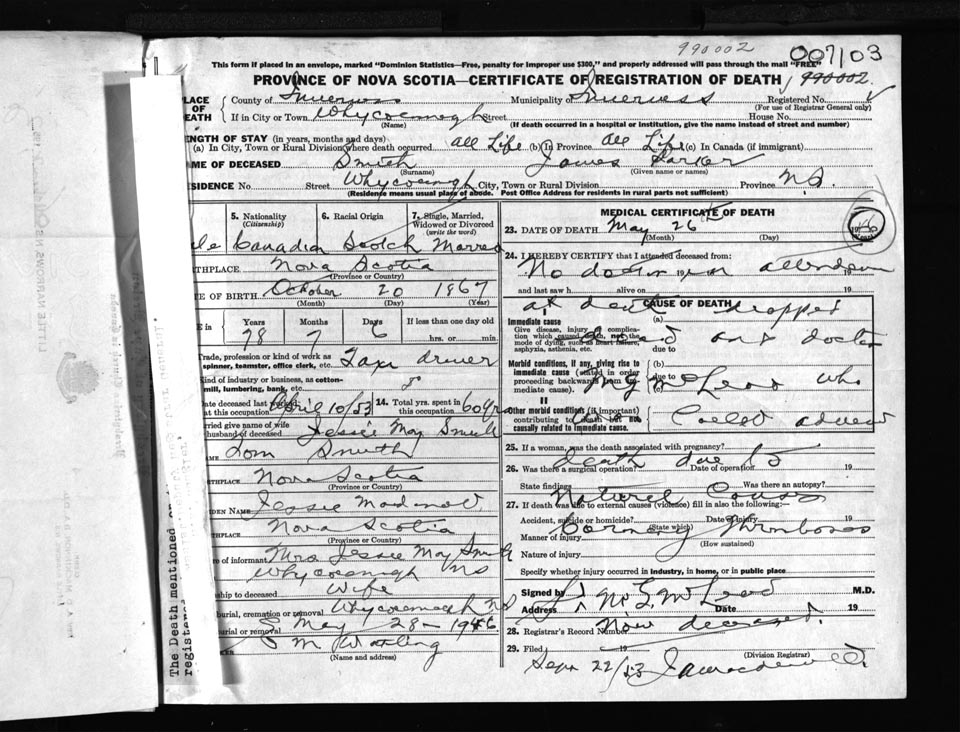 990002
007103
This form if placed in an envelope, marked "Dominion Statistics—Free, penalty for improper use $300," and properly addressed will pass through the mail "FREE"
PROVINCE OF NOVA SCOTIA—CERTIFICATE OF REGISTRATION OF DEATH 990002
PLACE OF DEATH County of Inverness Municipality of Inverness Registered No.
(For use of Registrar General only)
If in City or Town Whycocomagh Street House No.
(Name) (If death occurred in a hospital or institution, give the name instead of street and number)
LENGTH OF STAY (in years, months and days)
(a) In City, Town or Rural Division where death occurred All Life (b) In Province All Life (c) In Canada (if immigrant)
NAME OF DECEASED Smith James Parker
(Surname) (Given name or names)
RESIDENCE No Street Whycocomagh City, Town or Rural Division Province N.S.
(Residence means usual place of abode. Post Office Address for residents in rural parts not sufficient)
5. Nationality 6. Racial Origin 7. Single, Married, Widowed or Divorced
(Citizenship) (write the word)
le Canadian Scotch Married
THPLACE Nova Scotia
(Province or Country)
TE OF BIRTH October 20 1867
(Month) (Day) (Year)
E in Years Months Days If less than one day old
78 7 6 hrs. or min.
Trade, profession or kind of work as spinner, teamster, office clerk, etc. Taxi driver
Kind of industry or business, as cotton-mill, lumbering, bank, etc.
Date deceased last worked at this occupation April 10/53 14. Total yrs. spent in this occupation 60 yrs
rried give name of wife husband of deceased Jessie May Smith
AME Tom Smith
THPLACE Nova Scotia
(Province or Country)
IDEN NAME Jessie
THPLACE Nova Scotia
(Province or Country)
re of informant Mrs. Jessie May Smith
Whycocomagh NS
ship to deceased Wife
burial, cremation or removal Whycocomagh NS
urial or removal May 28 - 1946
(Name and address)
The Death mentioned
registered
MEDICAL CERTIFICATE OF DEATH
23. DATE OF DEATH May 26th 1946
(Month) (Day) (Year)
24. I HEREBY CERTIFY that I attended deceased from:
No doctor in attendance 19
and last saw h alive on 19
at death dropped
CAUSE OF DEATH
Immediate cause (a)
Give disease, injury or complication which caused death, not the mode of dying, such as heart failure, asphyxia, asthenia, etc. due to
dead and doctor
Morbid conditions, if any, giving rise to immediate cause (stated in order proceeding backwards from immediate cause). (b) due to (c)
McLeod who
Other morbid conditions (if important) contributing to death but not causally related to immediate cause.
was called advised
25. If a woman, was the death associated with pregnancy?
death due to
26. Was there a surgical operation? Date of operation 19
State findings Was there an autopsy?
Natural Causes
27. If death was due to external causes (violence) fill in also the following:—
Accident, suicide or homicide? Date of injury 19
(State which)
Coronary Thrombosis
Manner of injury
(How sustained)
Nature of injury
Specify whether injury occurred in industry, in home, or in public place
Signed by McLeod M.D.
Address Date 19
Now deceased.
28. Registrar's Record Number
29. Filed 19
(Division Registrar)
Sept 22/53